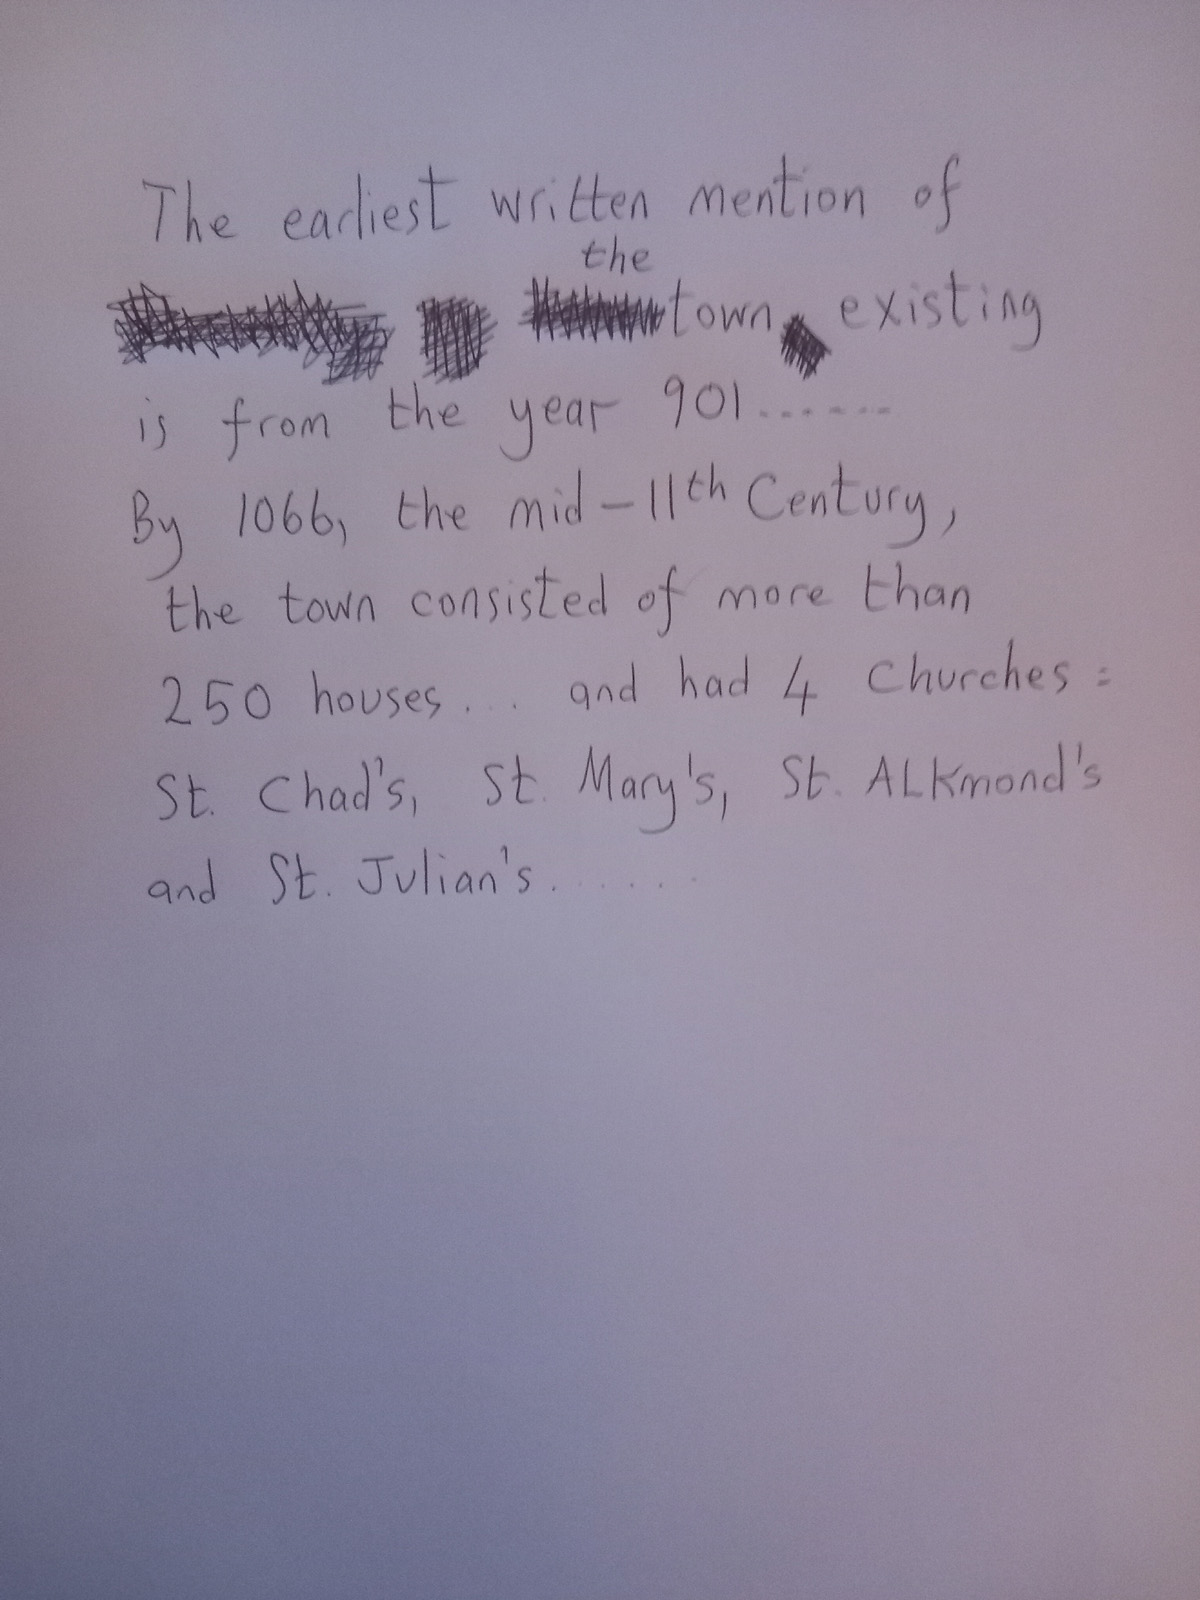 The earliest written mention of
the
town existing
is from the year 901.......
By 1066, the mid-11th Century,
the town consisted of more than
250 houses... and had 4 Churches:
St. Chad's, St. Mary's, St. ALKmond's
and St. Julian's.......